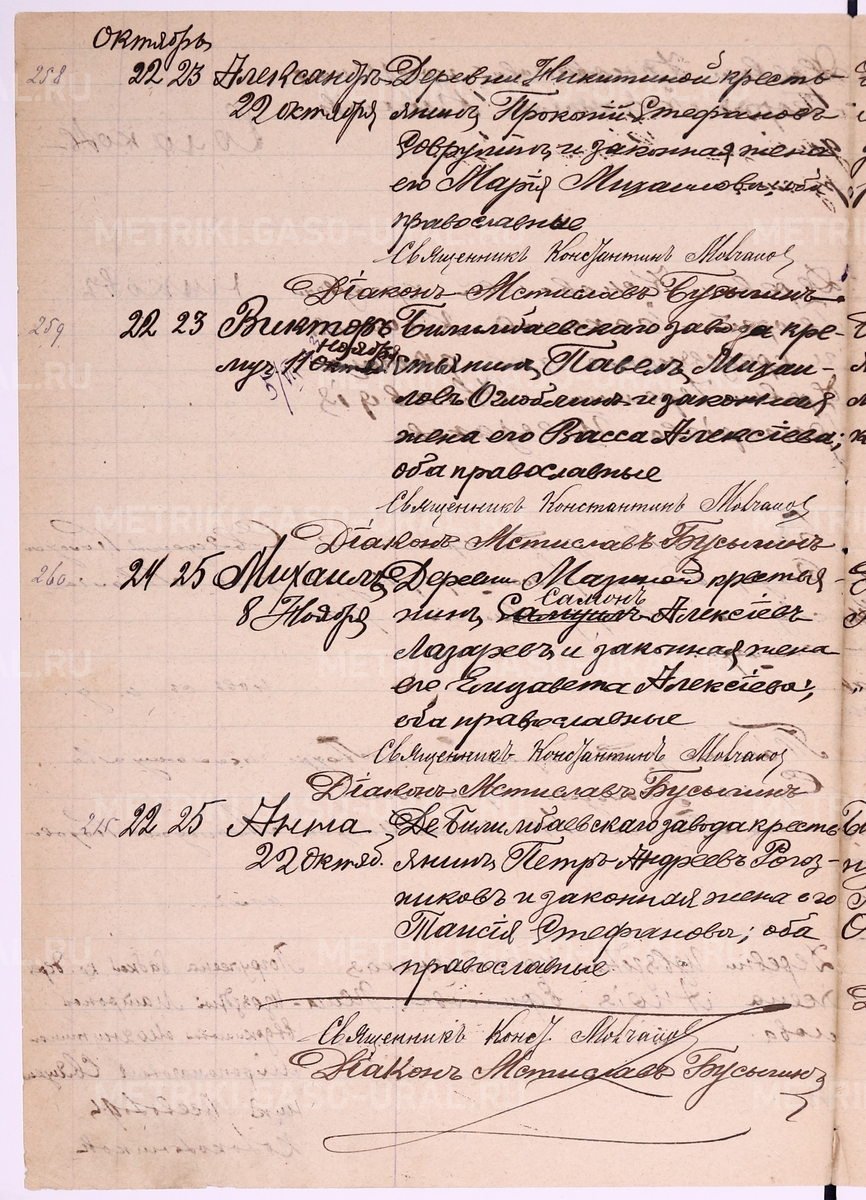 Октябрь
258 22 23 Александръ Деревни Никитиной кресть-
22 октября янинъ Прокопiй Стефановъ
и законная жена
его Марiя Михаилова; оба
православные
Священникъ Константинъ Мовчанов
Дiаконъ Мстиславъ Бусыгинъ.
259 22 23 Викторъ Билимбаевскаго завода кре-
Ноября
муч. 11 стьянинъ Павелъ Михаи-
ловъ Оглоблинъ и законная
жена его Васса Алексiева;
оба православные
Священникъ Константинъ Мовчанов
Дiаконъ Мстиславъ Бусыгинъ
260. 24 25 Михаилъ Деревни крестья
Самонъ
8 Ноября нинъ Самуилъ Алексiевъ
Лазаревъ и законная жена
его Елизавета Алексiева;
оба православные
Священникъ Константинъ Мовчанов
Дiаконъ Мстиславъ Бусыгинъ
215 22 25 Анна Де Билимбаевскаго завода кресть
22 Октяб. янинъ Петръ Андреевъ Рогоз-
никовъ и законная жена его
Таисiя Стефанова; оба
православные
Священникъ Конст. Мовчанов
Дiаконъ Мстиславъ Бусыгинъ
METRIKI.GASO-URAL.RU